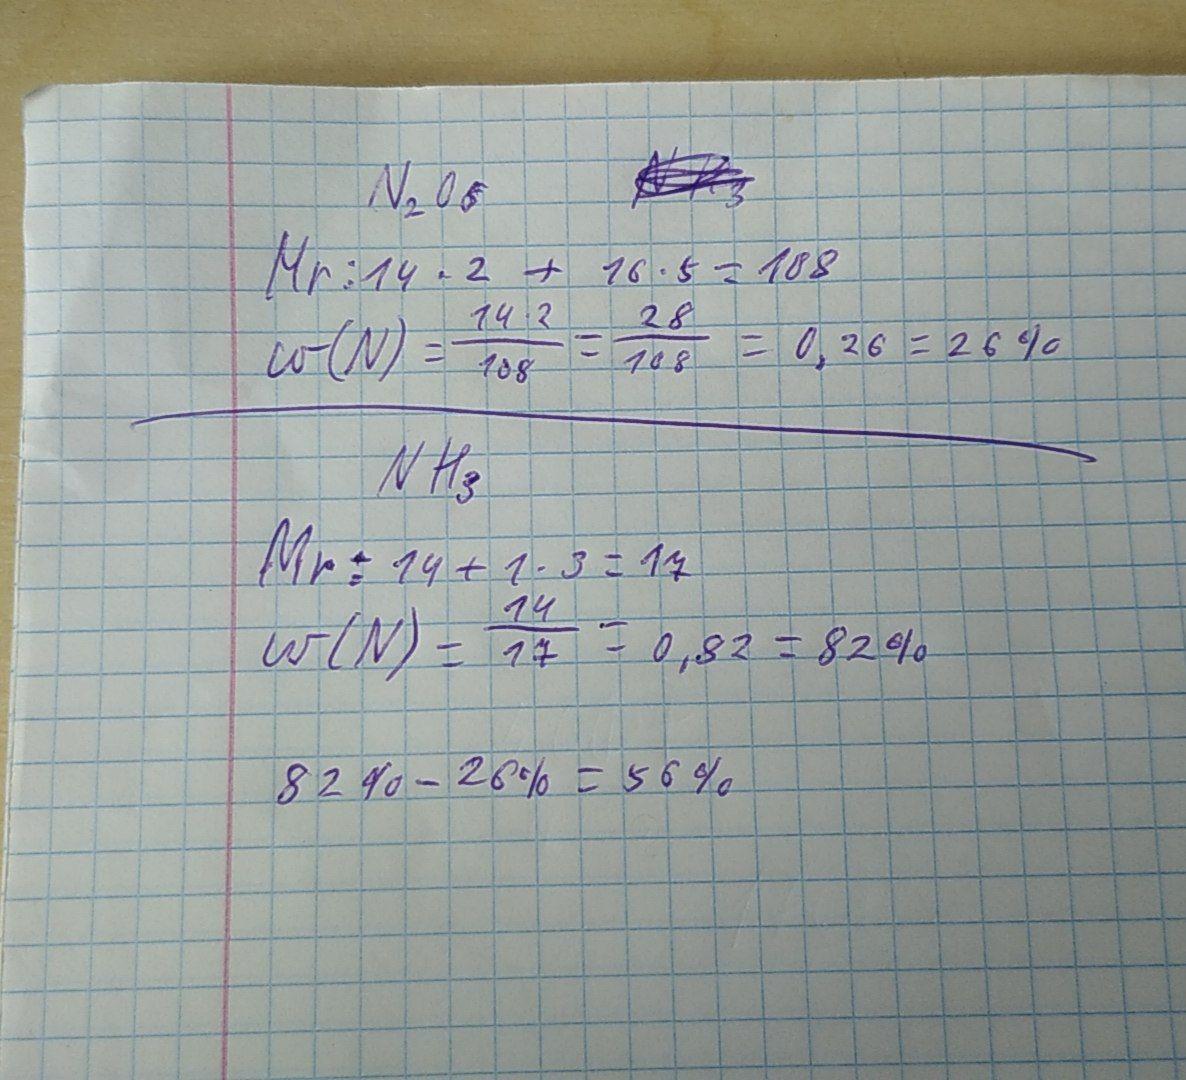 N₂O₅
Mr: 14 · 2 + 16 · 5 = 108
ω(N) = \frac{14·2}{108} = \frac{28}{108} = 0,26 = 26%
NH₃
Mr: 14 + 1 · 3 = 17
ω(N) = \frac{14}{17} = 0,82 = 82%
82% - 26% = 56%